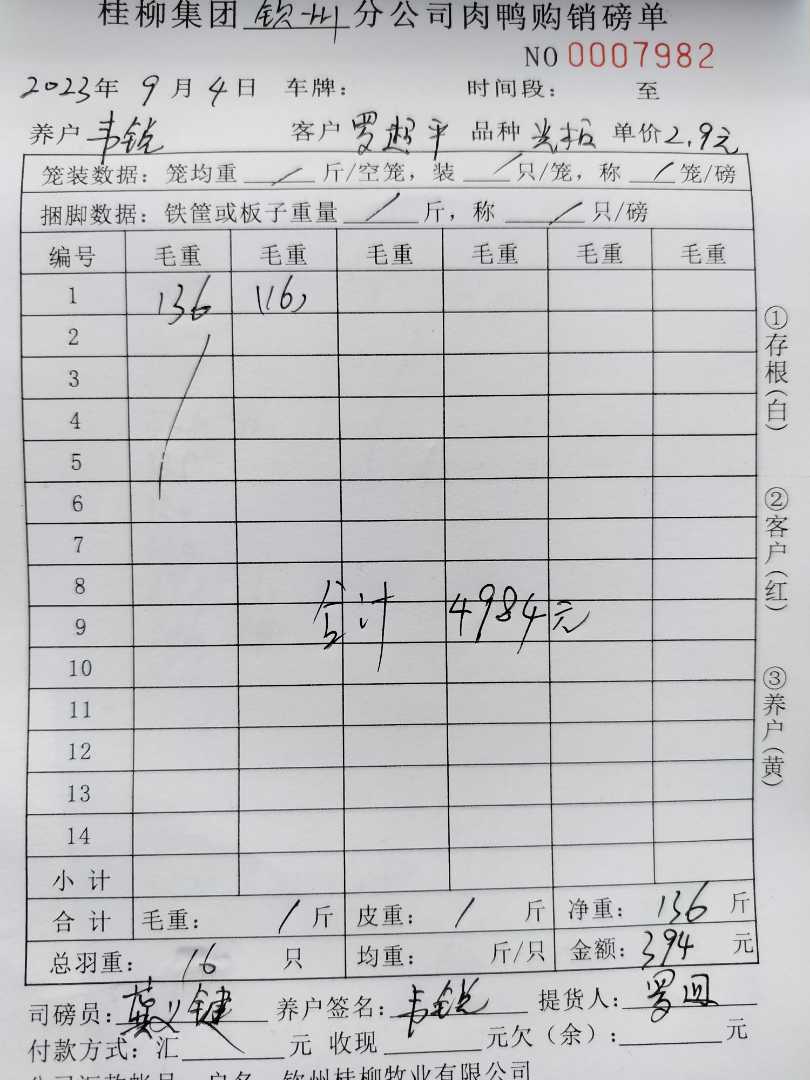 桂柳集团 钦州 分公司肉鸭购销磅单
NO 0007982
2023年 9 月 4 日 车牌: 时间段: 至
养户 韦锐 客户 罗超平 品种 光板 单价2.9元
笼装数据: 笼均重 / 斤/空笼, 装 / 只/笼, 称 / 笼/磅
捆脚数据: 铁筐或板子重量 / 斤, 称 / 只/磅
编号 毛重 毛重 毛重 毛重 毛重 毛重
1 136 (16)
2
3
4
5
6
7
8
合计 4984元
9
10
11
12
13
14
小计
合计 毛重: / 斤 皮重: / 斤 净重: 136 斤
总羽重: 16 只 均重: 斤/只 金额: 394 元
司磅员: 养户签名: 韦锐 提货人:
付款方式: 汇 元 收现 元欠(余): 元
公司汇款帐号 户名 钦州桂柳牧业有限公司
①存根(白)
②客户(红)
③养户(黄)